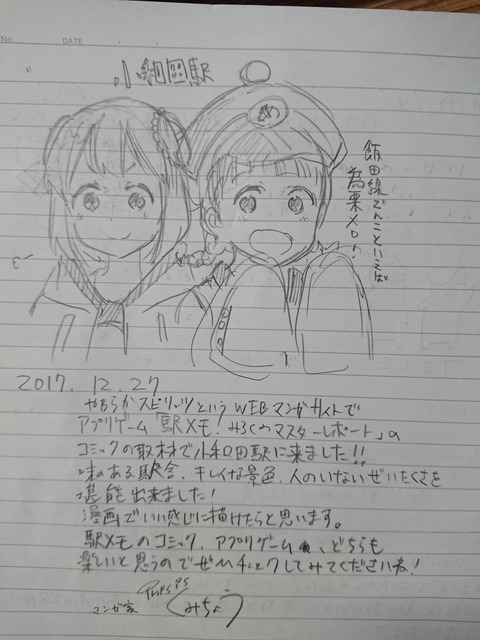 No.
DATE
小和田駅
め
飯田線でんこといえば
為栗メロ♪
2017. 12. 27
やわらかスピリッツという WEBマンガサイトで
アプリゲーム「駅メモ！みろくのマスターレポート」の
コミックの取材で小和田駅に来ました!!
味のある駅舎、キレイな景色、人のいないぜいたくさを
堪能出来ました！
漫画でいい感じに描けたらと思います。
駅メモのコミック、アプリゲーム、どちらも
楽しいと思うのでぜひチェックしてみてくださいね！
マンガ家 くみちょう